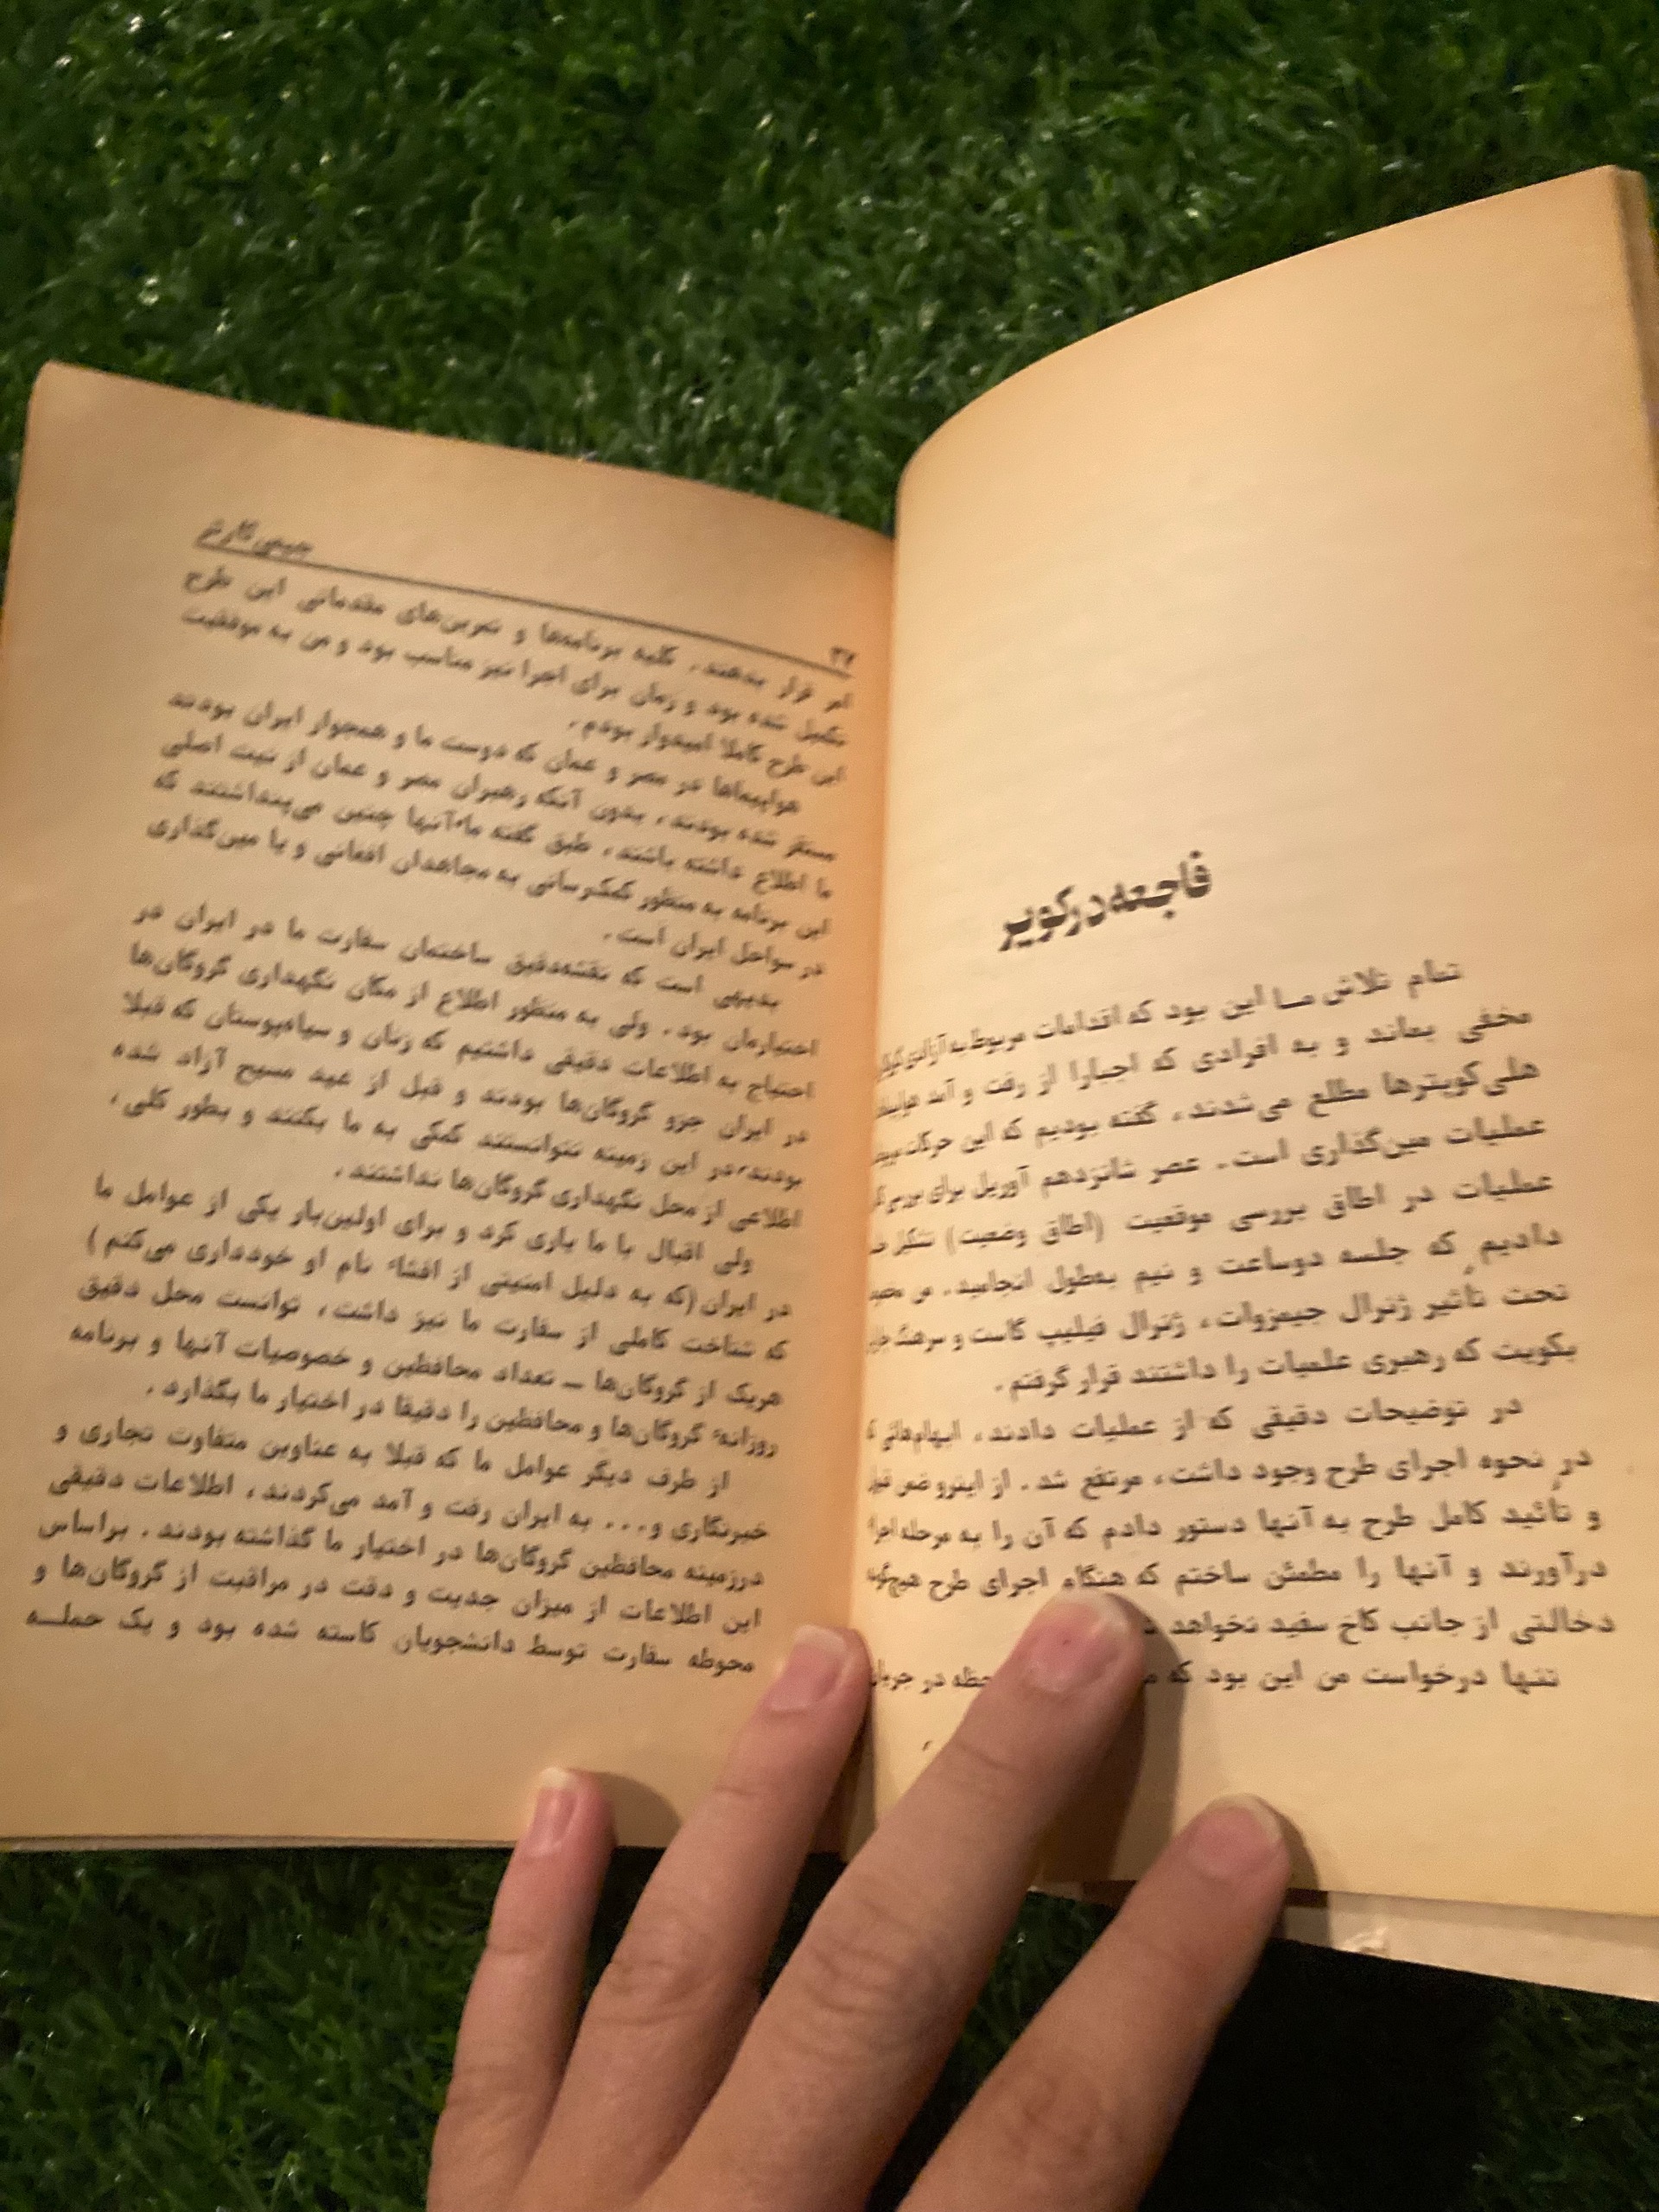 فاجعه در کویر
تمام تلاش مـا این بود که اقدامات مربوط به آزادی
مخفی بماند و به افرادی که اجبارا از رفت و آمد
هلی‌کوپترها مطلع می‌شدند، گفته بودیم که این حرکات
عملیات مین‌گذاری است. عصر شانزدهم آوریل برای بررسی
عملیات در اطاق بررسی موقعیت (اطاق وضعیت) تشکیل
دادیم که جلسه دوساعت و نیم بطول انجامید. من
تحت تأثیر ژنرال جیمزوات، ژنرال فیلیپ گاست و سرهنگ
بکویت که رهبری علمیات را داشتند قرار گرفتم.
در توضیحات دقیقی که از عملیات دادند، ابهام‌هائی
در نحوه اجرای طرح وجود داشت، مرتفع شد. از اینرو ضمن
و تأئید کامل طرح به آنها دستور دادم که آن را به مرحله
درآورند و آنها را مطمئن ساختم که هنگام اجرای طرح
دخالتی از جانب کاخ سفید نخواهد
تنها درخواست من این بود که
۳۲ جیمی کارتر
امر قرار بدهند. کلیه برنامه‌ها و تمرین‌های مقدماتی این طرح
تکمیل شده بود و زمان برای اجرا نیز مناسب بود و من به موفقیت
این طرح کاملا امیدوار بودم.
هواپیماها در مصر و عمان که دوست ما و همجوار ایران بودند
مستقر شده بودند، بدون آنکه رهبران مصر و عمان از نیت اصلی
ما اطلاع داشته باشند. طبق گفته ما آنها چنین می‌پنداشتند که
این برنامه به منظور کمک‌رسانی به مجاهدان افغانی و یا مین‌گذاری
در سواحل ایران است.
بدیهی است که نقشه دقیق ساختمان سفارت ما در ایران در
اختیارمان بود. ولی به منظور اطلاع از مکان نگهداری گروگان‌ها
احتیاج به اطلاعات دقیقی داشتیم که زنان و سیاهپوستان که قبلا
در ایران جزو گروگان‌ها بودند و قبل از عید مسیح آزاد شده
بودند در این زمینه نتوانستند کمکی به ما بکنند و بطور کلی،
اطلاعی از محل نگهداری گروگان‌ها نداشتند.
ولی اقبال با ما یاری کرد و برای اولین‌بار یکی از عوامل ما
در ایران (که به دلیل امنیتی از افشاء نام او خودداری می‌کنم)
که شناخت کاملی از سفارت ما نیز داشت، توانست محل دقیق
هریک از گروگان‌ها ـ تعداد محافظین و خصوصیات آنها و برنامه
روزانهٔ گروگان‌ها و محافظین را دقیقا در اختیار ما بگذارد.
از طرف دیگر عوامل ما که قبلا به عناوین متفاوت تجاری و
خبرنگاری و... به ایران رفت و آمد می‌کردند، اطلاعات دقیقی
درزمینه محافظین گروگان‌ها در اختیار ما گذاشته بودند. براساس
این اطلاعات از میزان جدیت و دقت در مراقبت از گروگان‌ها و
محوطه سفارت توسط دانشجویان کاسته شده بود و یک حملــه